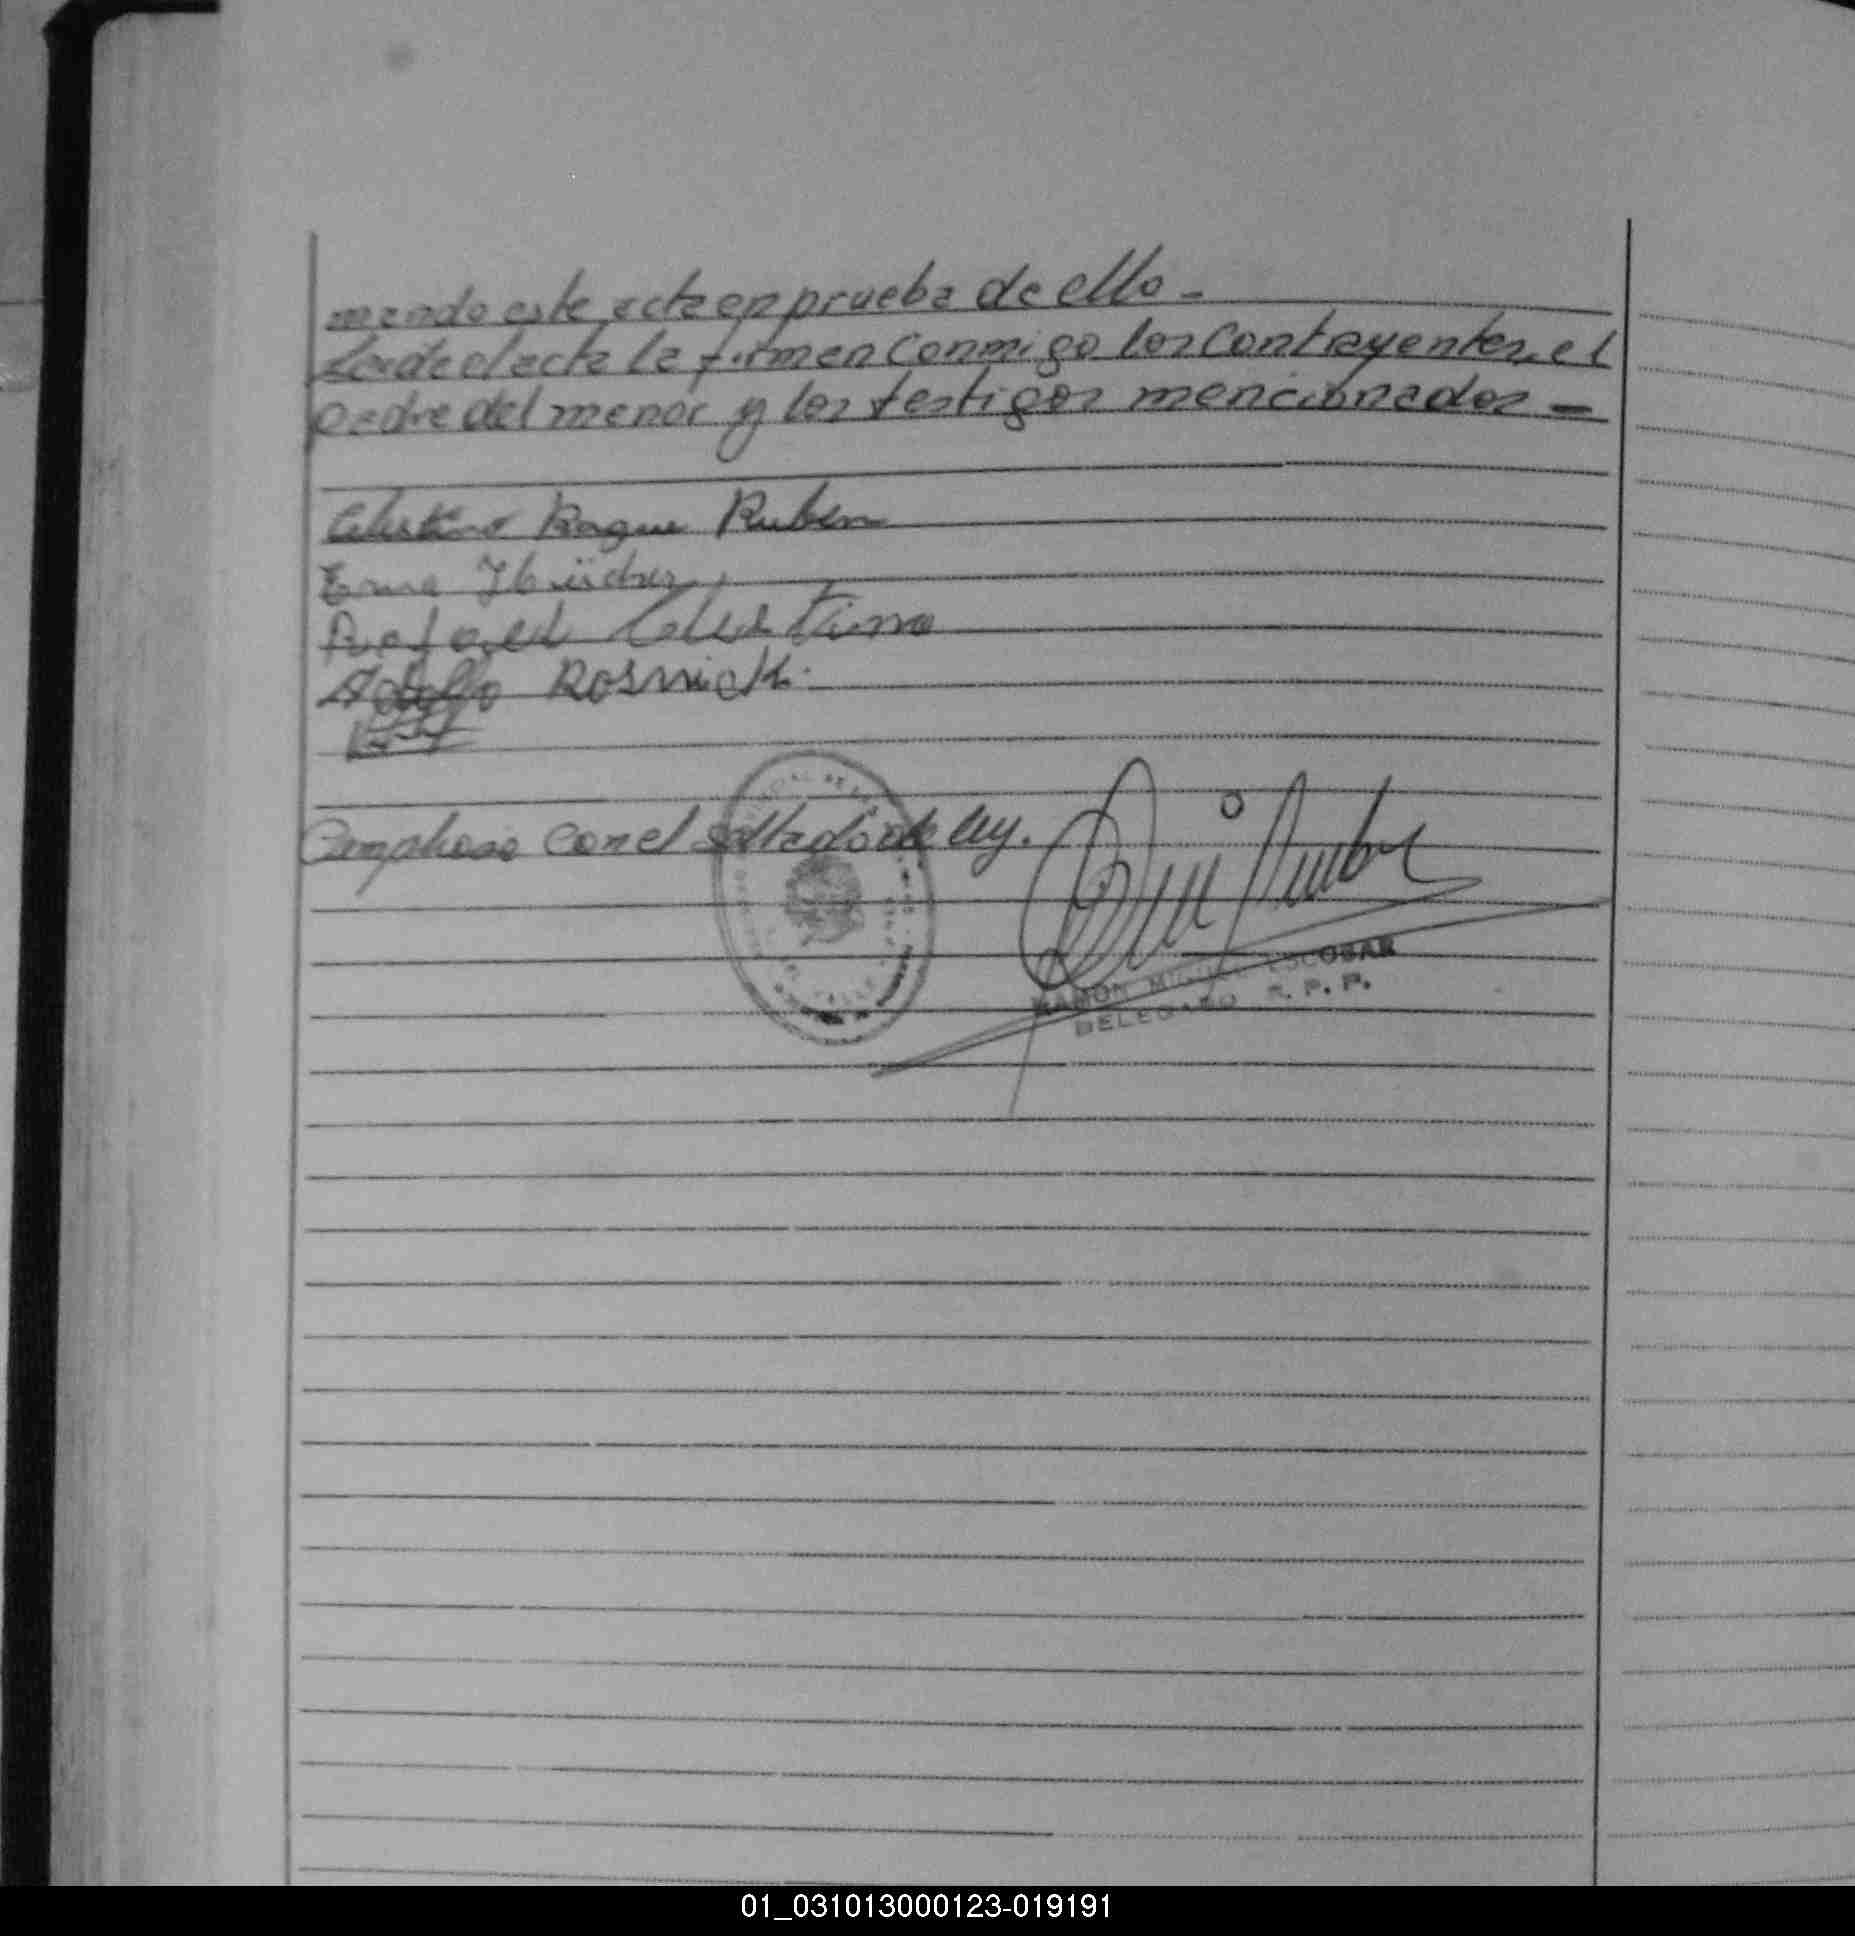 mando este acta en prueba de ello -
Leíde el acta la firman conmigo los contrayentes, el
padre del menor y los testigos mencionados -
Celestino Roque Ruben
Erma
Rafael Celestino
Adolfo Rosnick.
con el sellado de ley.
RAMON MIGUEL ESCOBAR
DELEGADO R. P. P.
01_031013000123-019191